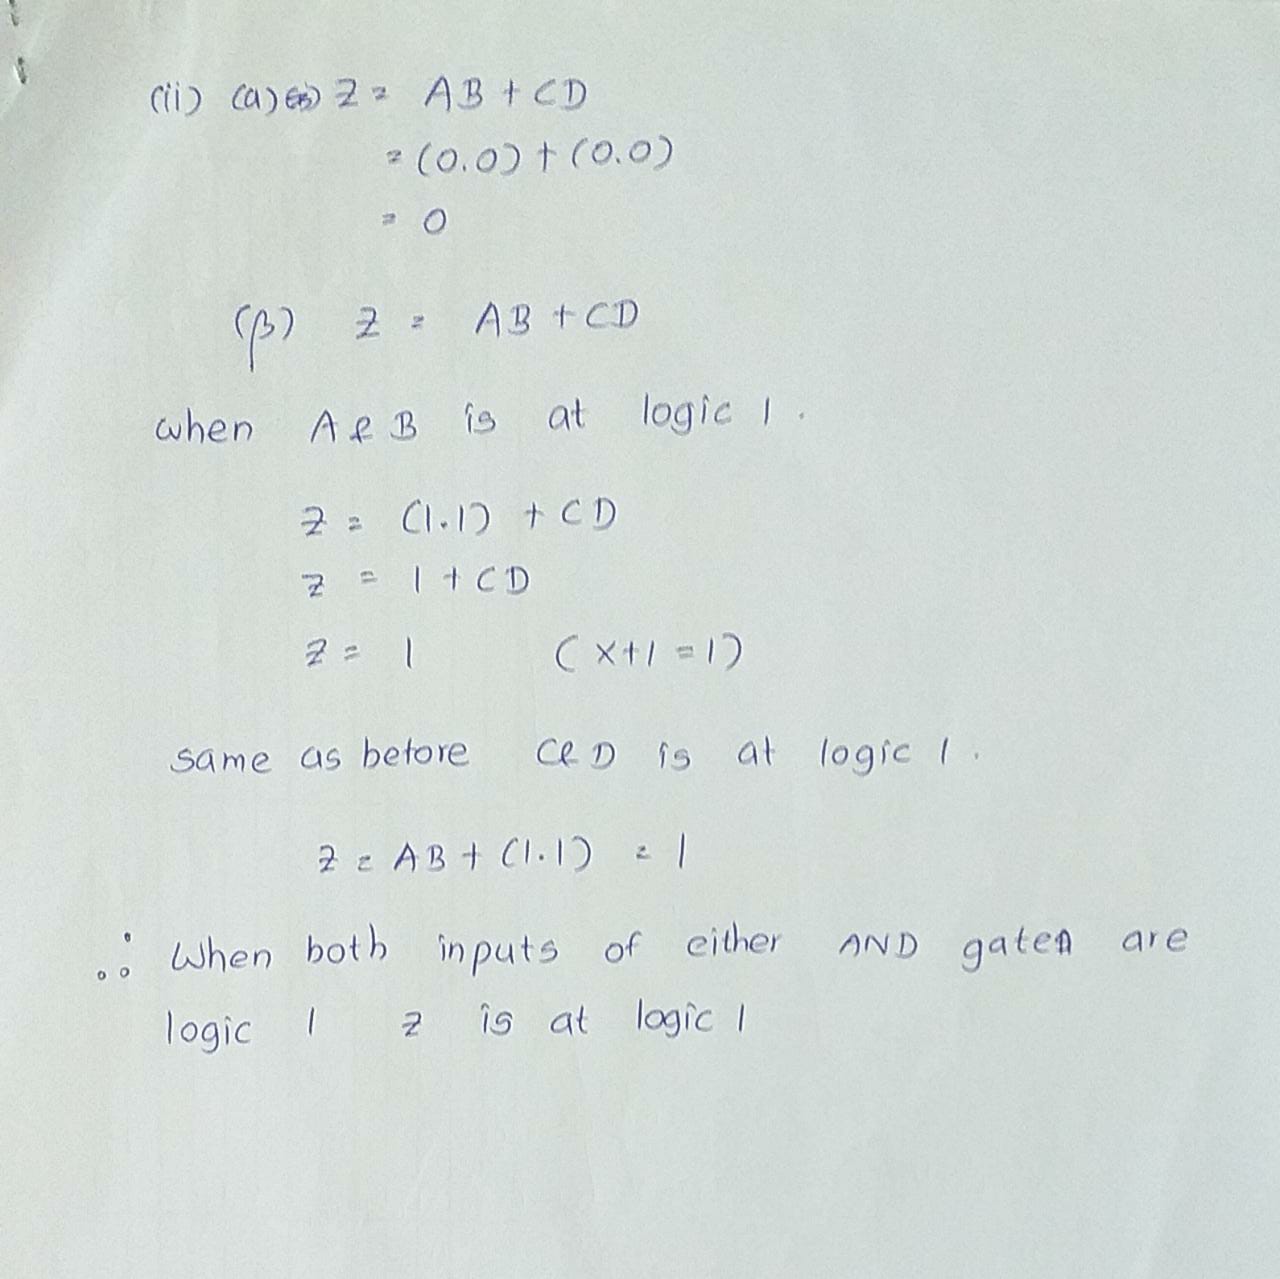 (ii) (a) Z = AB + CD
= (0.0) + (0.0)
= 0
(β) Z = AB + CD
when A & B is at logic 1.
Z = (1.1) + CD
Z = 1 + CD
Z = 1 (x+1 = 1)
same as before C & D is at logic 1.
Z = AB + (1.1) = 1
∴ When both inputs of either AND gates are
logic 1 Z is at logic 1